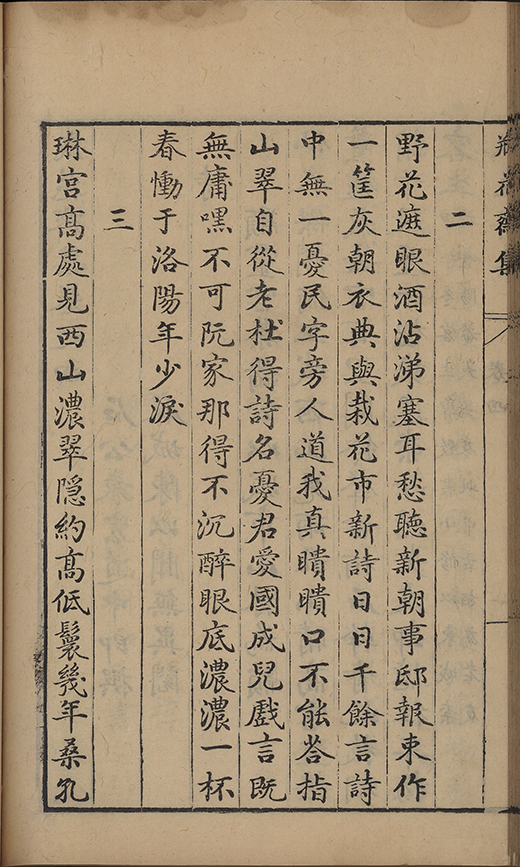 瓶花齋集
二
野花遮眼酒沾涕塞耳愁聽新朝事邸報束作
一筐灰朝衣典與栽花市新詩日日千餘言詩
中無一憂民字旁人道我真聵聵口不能荅指
山翠自從老杜得詩名憂君愛國成兒戲言既
無庸嘿不可阮家那得不沉醉眼底濃濃一杯
春慟于洛陽年少淚
三
琳宫高處見西山濃翠隠約高低鬟幾年桑孔